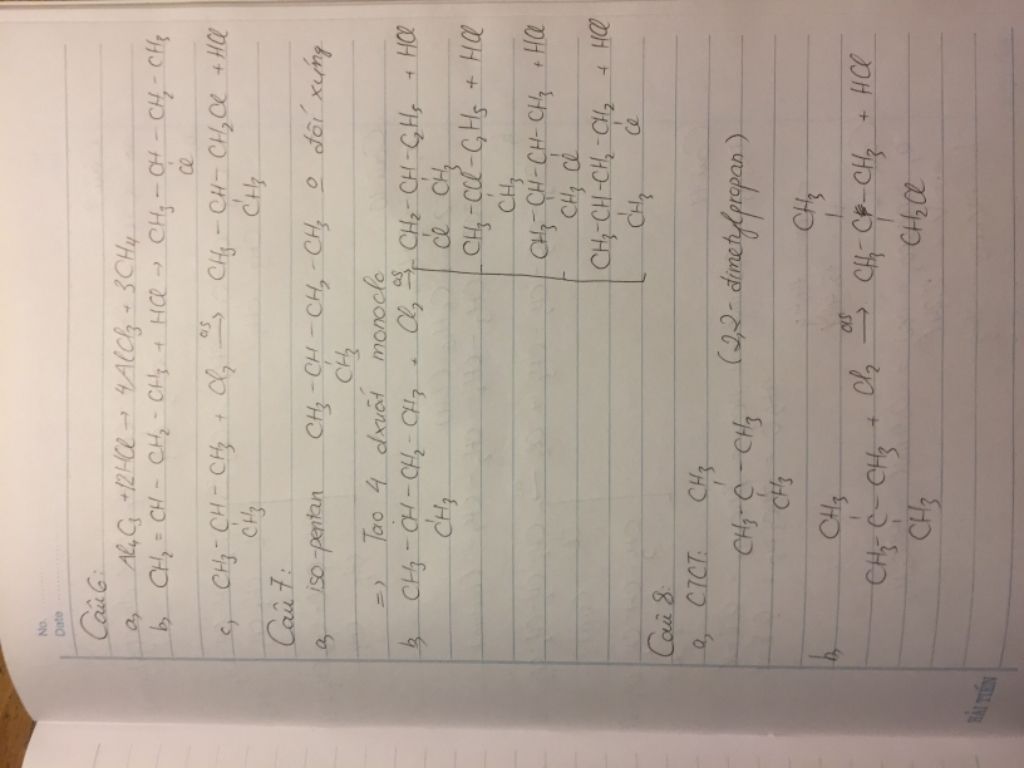 No.
Date
Câu 6:
a, Al4C3 + 12HCl → 4AlCl3 + 3CH4
b, CH2 = CH - CH2 - CH3 + HCl → CH3 - CH - CH2 - CH3
Cl
c, CH3 - CH - CH3 + Cl2 as → CH3 - CH - CH2Cl + HCl
CH3 CH3
Câu 7:
a, iso-pentan CH3 - CH - CH2 - CH3 o đối xứng
CH3
=> Tạo 4 dxuất monoclo
b, CH3 - CH - CH2 - CH3 + Cl2 as → CH2 - CH - C2H5 + HCl
CH3 Cl CH3
CH3 - CCl - C2H5 + HCl
CH3
CH3 - CH - CH - CH3 + HCl
CH3 Cl
CH3 - CH - CH2 - CH2 + HCl
CH3 Cl
Câu 8:
a, CTCT: CH3
CH3 - C - CH3 (2,2 - dimetylpropan)
CH3
b, CH3 CH3
CH3 - C - CH3 + Cl2 as → CH3 - C - CH3 + HCl
CH3 CH2Cl
HẢI TIẾN